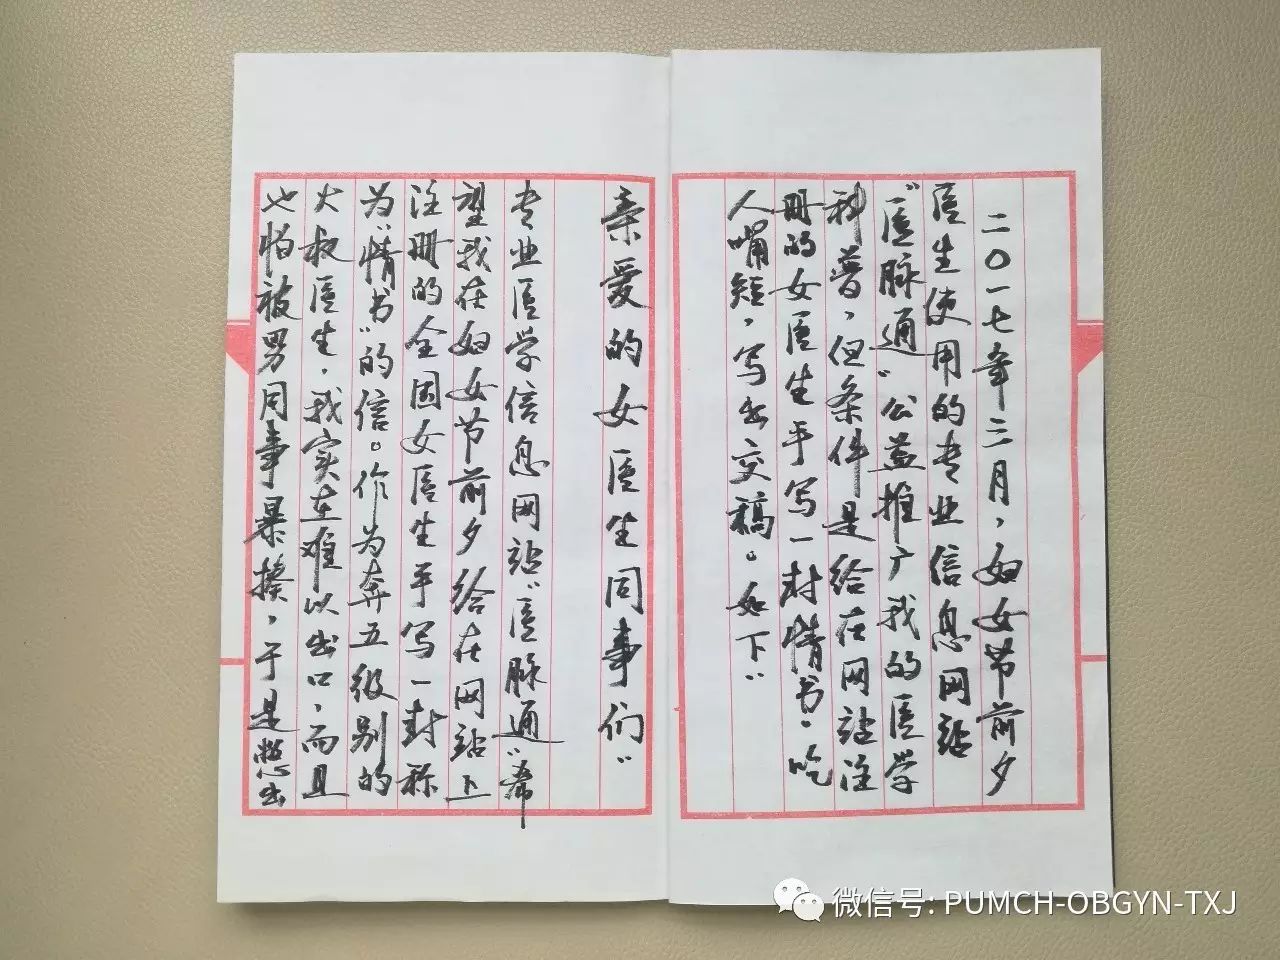 二〇一七年三月，妇女节前夕
医生使用的专业信息网站
“医脉通”公益推广我的医学
科普，但条件是给在网站注
册的女医生手写一封情书。吃
人嘴短，写出交稿。如下：
亲爱的女医生同事们：
专业医学信息网站“医脉通”希
望我在妇女节前夕给在网站上
注册的全国女医生手写一封称
为“情书”的信。作为奔五级别的
大叔医生，我实在难以出口，而且
也怕被男同事暴揍，于是憋出
微信号: PUMCH-OBGYN-TXJ